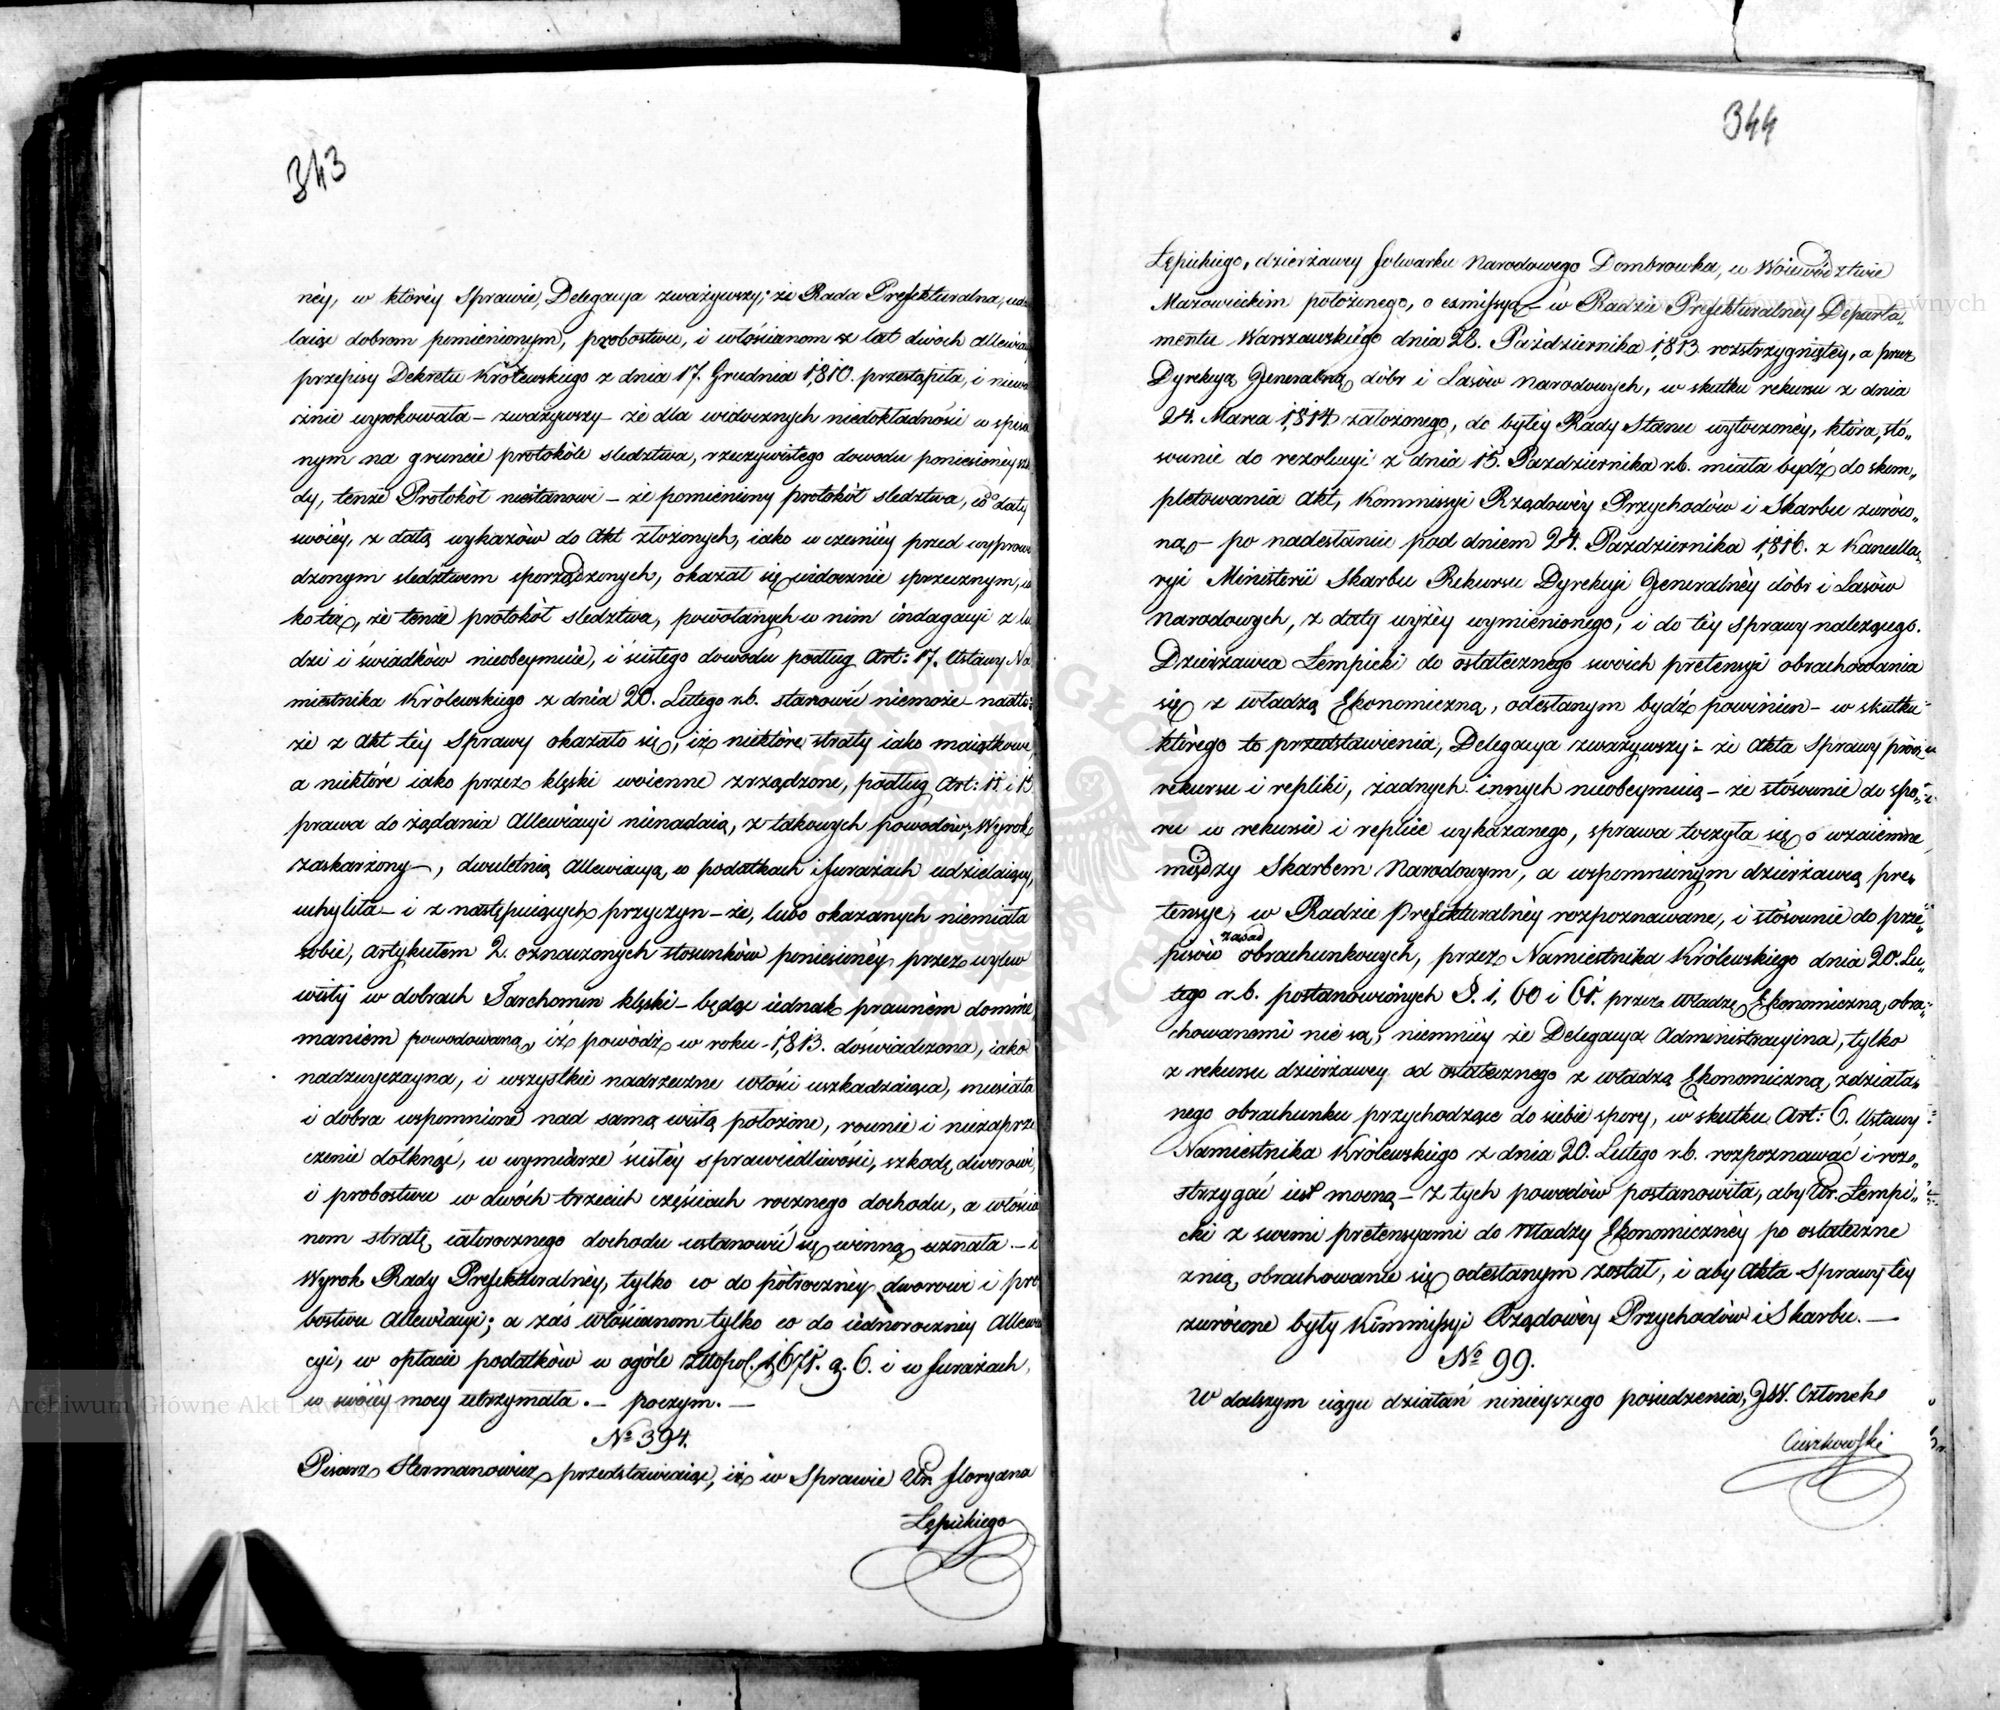 343
néy, w któréy Sprawie, Delegacya zważywszy; że Rada Prefekturalna, udzie
laiąc dobrom pomienionym, probostwu, i włościanom z lat dwóch Allewiacyą
przepisy Dekretu Królewskiego z dnia 17. Grudnia 1,810. przestąpiła, i niewła
cznie wyrokowała – zważywszy – że dla widocznych niedokładności w spisa
nym na gruncie protokóle sledztwa, rzeczywistego dowodu poniesionéy szko
dy, tenże Protokół niestanowi – że pomieniony protokół sledztwa, co do daty
swoiéy, z datą wykazów do Akt złożonych, iako wczesniéy przed wyprowa
dzonym sledztwem sporządzonych, okazał się widocznie sprzecznym,
ko téż, że tenże protokół sledztwa, powołanych w nim indagacyi z lu
dzi i świadków nieobeymuie, i scisłego dowodu podług Art: 17. Ustawy Na
miestnika Królewskiego z dnia 20. Lutego r.b. stanowić niemoże – nadto
że z Akt téy Sprawy okazało się, iż niektóre straty iako maiątkowe,
a niektóre iako przez klęski woienne zrządzone, podług Art: 11 i 15
prawa do żądania Allewiacyi nienadaią, z takowych powodów, Wyrok
zaskarżony –, dwuletnią Allewiacyą, w podatkach i furażach udzielaiący,
uchyliła – i z następuiących przyczyn – że, lubo okazanych niemiała
sobie, Artykułem 2. oznaczonych stosunków poniesionéy przez wylew
wisły w dobrach Tarchomin klęski – będąc iednak prawném domnie
maniem powodowaną, iż powódź w roku 1,813. doświadczona, iako
nadzwyczayna, i wszystkie nadrzeczne włości uszkadzaiąca, musiała
i dobra wspomnione nad samą wisłą położone, równie i niezaprze
czenie dotknąć, w wymiarze scisłéy sprawiedliwości, szkodę dworowi,
i probostwu w dwóch trzecich częściach rocznego dochodu, a włościa
nom stratę całorocznego dochodu ustanowić się winną uznała – i
Wyrok Rady Prefekturalnéy, tylko co do półroczney dworowi i pro
bostwu Allewiacyi; a zaś włościanom tylko co do iednoroczney Allewia
cyi, w opłacie podatków w ogóle złtopol. 1,671. g. 6. i w furażach,
w swoiéy mocy utrzymała. – poczym. –
№ 394.
Pisarz Hermanowicz przedstawiaiąc, iż w Sprawie Ur. floryana
Łępickiego
344
Łępickiego, dzierżawcy folwarku Narodowego Dombrowka, w Woiewództwie
Mazowieckim położonego, o exmissyą – w Radzie Prefekturalnéy Departa„
mentu Warszawskiego dnia 28. Października 1,813 rozstrzygniętéy, a przez
Dyrekcyą Generalną dóbr i Lasów Narodowych, w skutku rekursu z dnia
24. Marca 1,814 założonego, do byłéy Rady Stanu wytoczonéy, która, stó„
sownie do rezolucyi z dnia 15. Października r.b. miała bydź do skom„
pletowania Akt, Kommissyi Rządowéy Przychodów i Skarbu zwróco„
ną – po nadesłaniu pod dniem 24. Października 1,816. z Kancella„
ryi Ministerii Skarbu Rekursu Dyrekcyi Generalnéy dóbr i Lasów
Narodowych, z daty wyżéy wymienionego, i do téy Sprawy należącego.
Dzierżawca Łempicki do ostatecznego swoich pretensyi obrachowania
się z władzą Ekonomiczną, odesłanym bydź powinien – w skutku
którego to przedstawienia, Delegacya zważywszy – że Akta Sprawy prócz
rekursu i repliki, żadnych innych nieobeymuią – że stósownie do spo„
ru w rekursie i replice wykazanego, sprawa toczyła się o wzaiemne
między Skarbem Narodowym, a wspomnionym dzierżawcą pre„
tensye, w Radzie Prefekturalnéy rozpoznawane, i stósownie do prze„
pisów zasad obrachunkowych, przez Namiestnika Królewskiego dnia 20. Lu„
tego r.b. postanowionych §. 1, 60 i 61. przez Władzę Ekonomiczną obra„
chowanemi nie są, niemniéy że Delegacya Administracyina, tylko
z rekursu dzierżawcy od ostatecznego z władzą Ekonomiczną zdziała„
nego obrachunku przychodzące do siebie spory, w skutku Art: 6. Ustawy
Namiestnika Królewskiego z dnia 20. Lutego r.b. rozpoznawać i roz„
strzygać iest mocną – z tych powodów postanowiła, aby Ur. Łempi„
cki z swemi pretensyami do Władzy Ekonomicznéy po ostateczne
z nią obrachowanie się odesłanym został, i aby Akta Sprawy téy
zwrócone były Kommissyi Rządowéy Przychodów i Skarbu. –
№ 99.
W dalszym ciągu działań ninieyszego posiedzenia, JW. Członek
Cieszkowski
Archiwum Główne Akt Dawnych